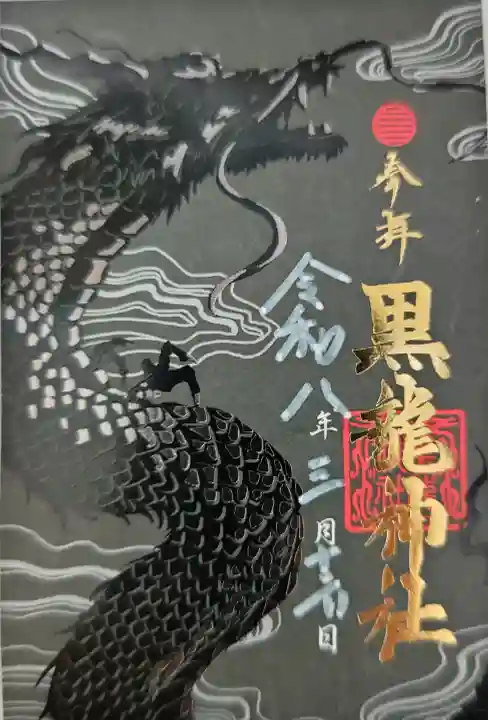 奉拝
黒龍神社
令和八年三月十 日